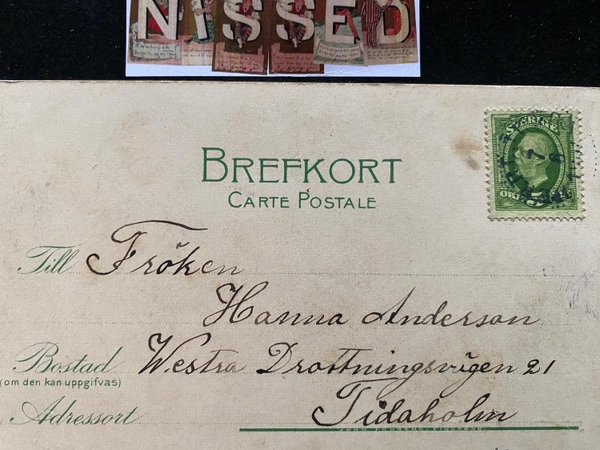 NISSED
BREFKORT
CARTE POSTALE
SVERIGE
5
ÖRE
Till Fröken
Hanna Anderson
Bostad Westra Drottningsvägen 21
(om den kan uppgifvas)
Adressort Tidaholm